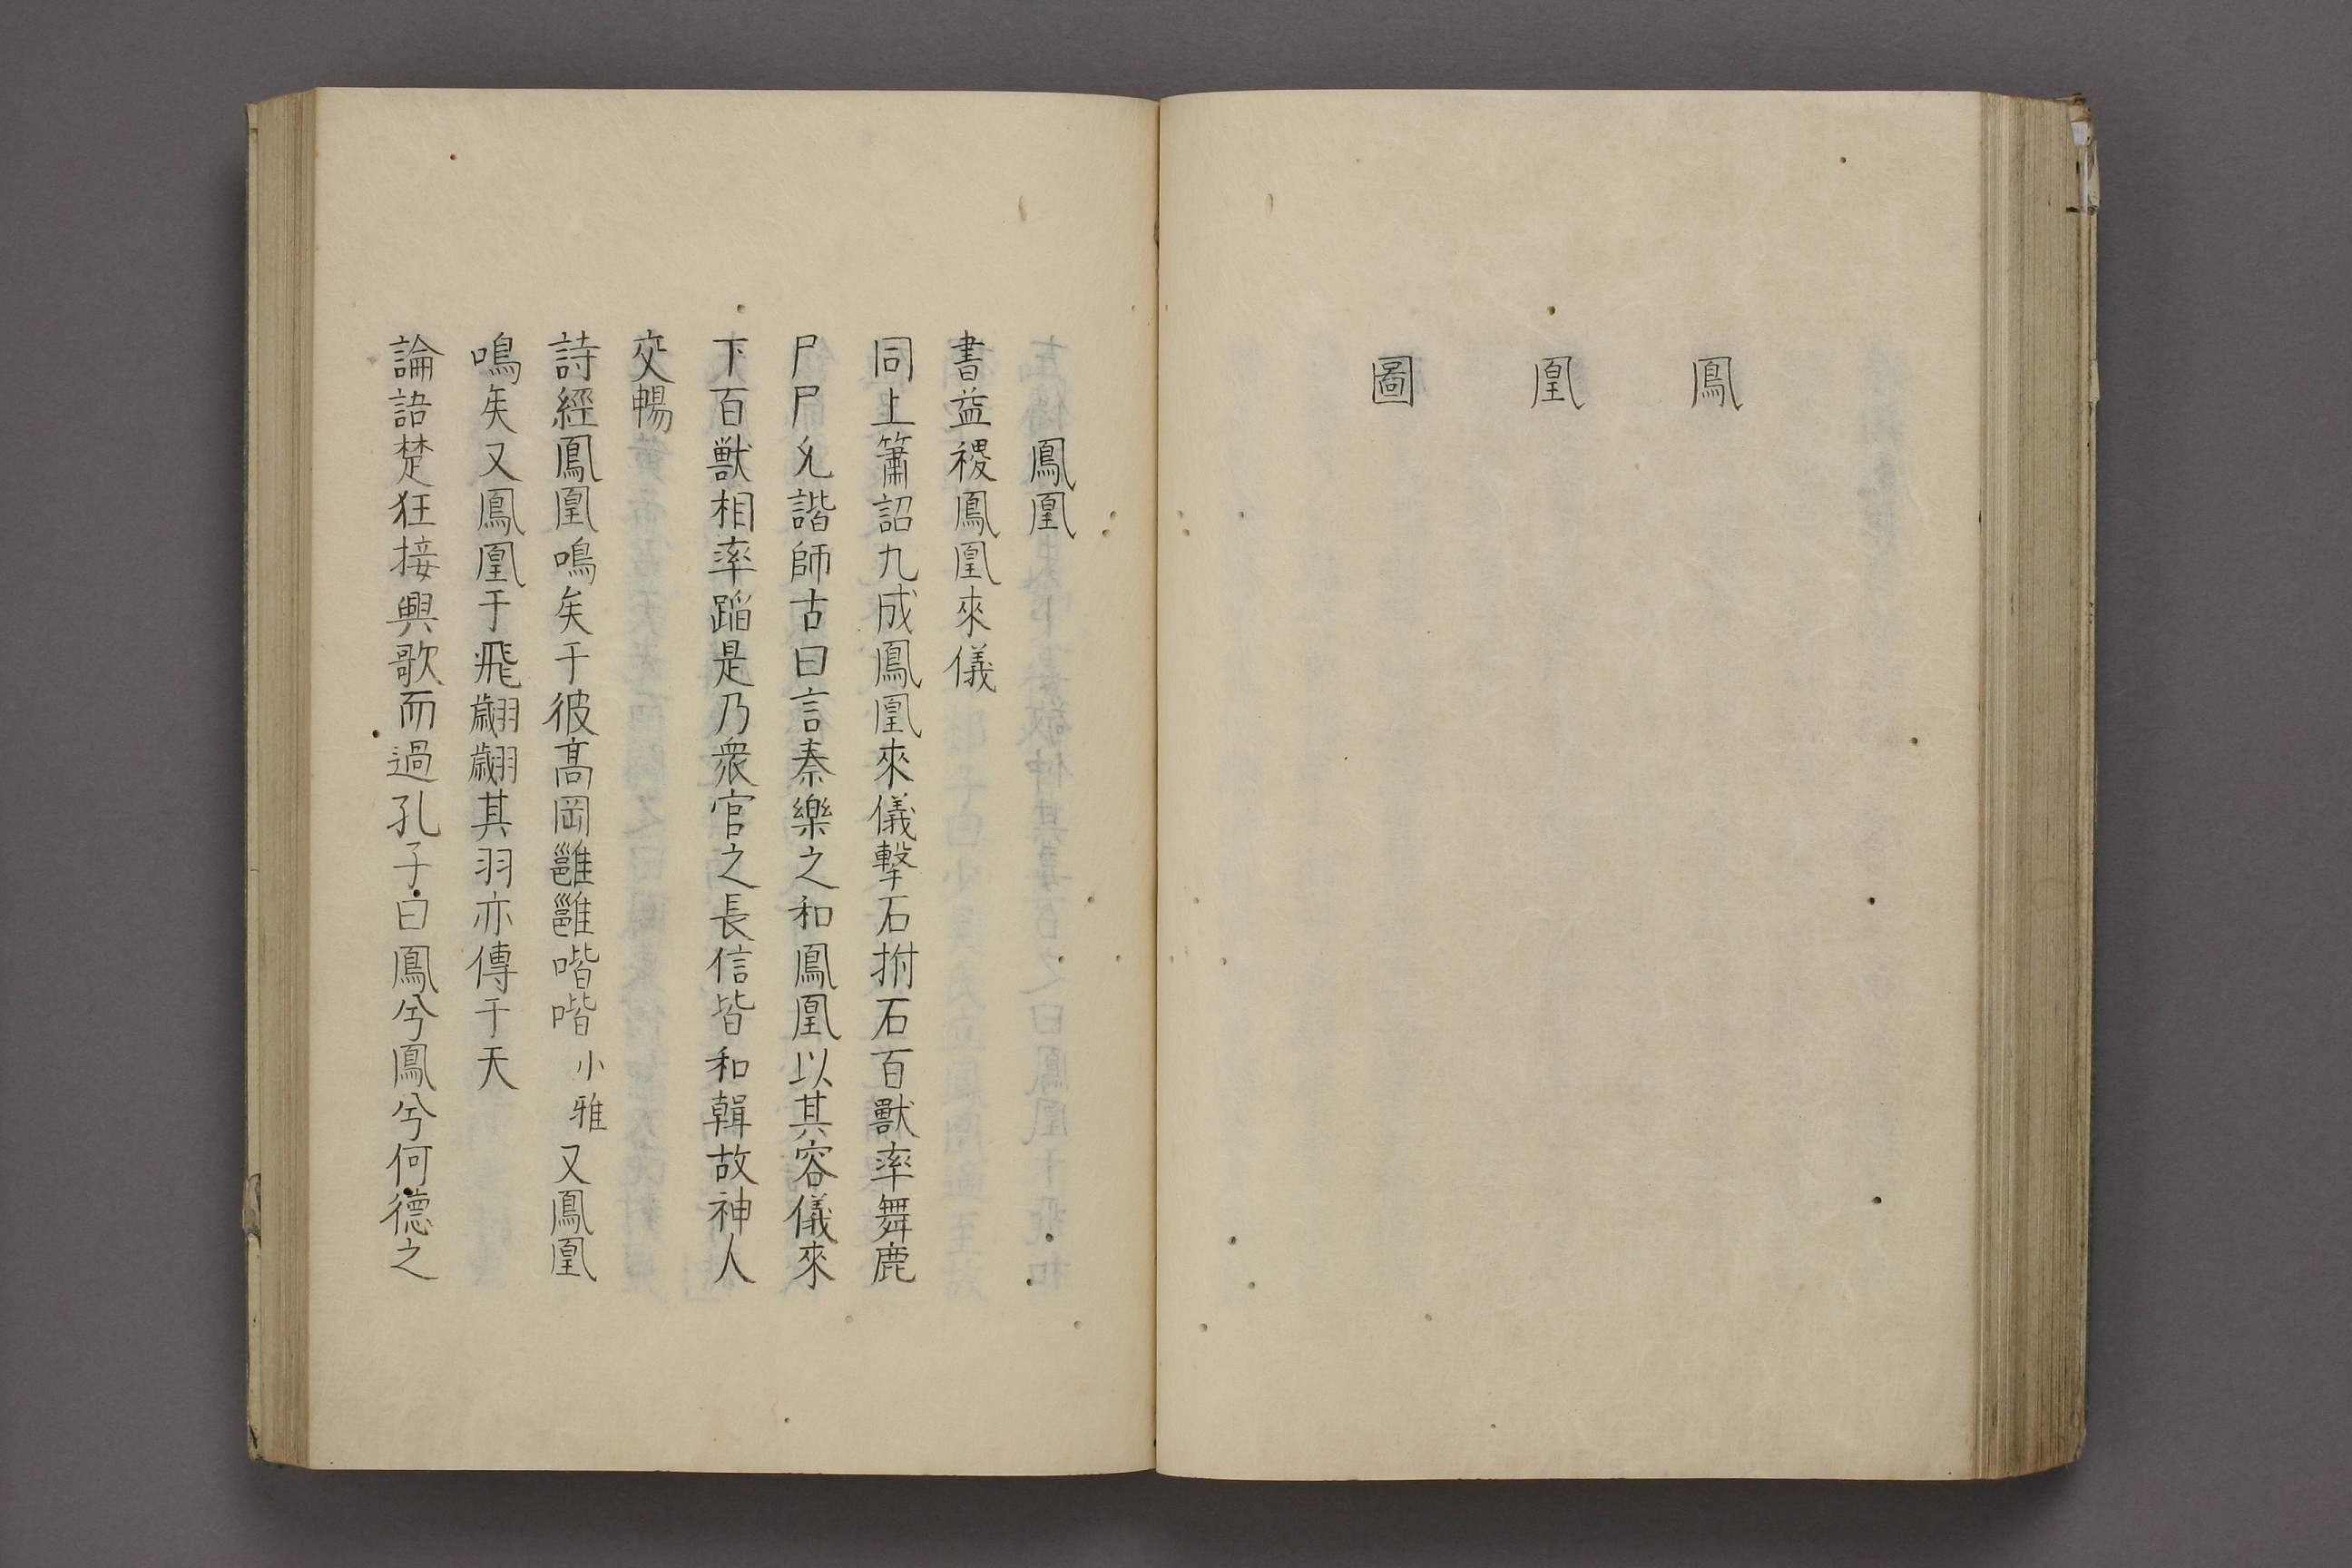 鳳凰圖
鳳凰
書益稷鳳凰來儀
同上簫詔九成鳳凰來儀擊石拊石百獸率舞鹿
尸尸允諧師古曰言奏樂之和鳳凰以其容儀來
下百獸相率蹈是乃衆官之長信皆和輯故神人
交暢
詩經鳳凰鳴矣于彼高岡雝雝喈喈小雅又鳳凰
鳴矣又鳳凰于飛翽翽其羽亦傳于天
論語楚狂接輿歌而過孔子曰鳳兮鳳兮何德之